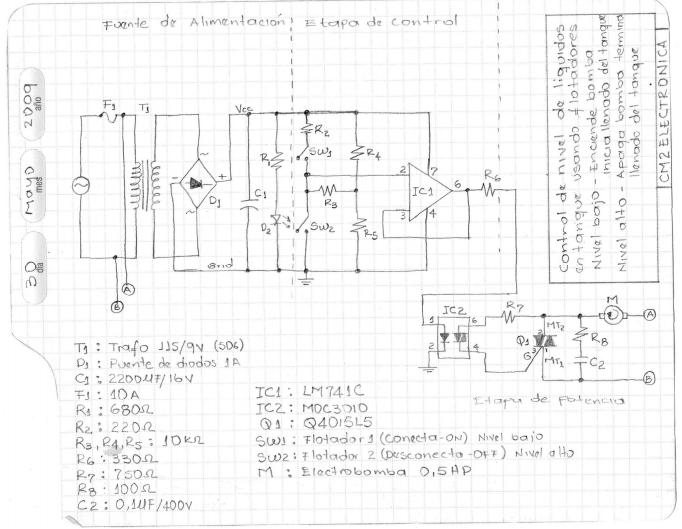 Fuente de Alimentación
Etapa de control
CM2 ELECTRONICA
Control de nivel de liquidos
en tanque usando flotadores
Nivel bajo - Enciende bomba
inicia llenado del tanque
Nivel alto - Apaga bomba termina
llenado del tanque
2009
año
Mayo
mes
30
dia
F1
T1
Vcc
~
-
+
D1
~
C1
R1
D2
R2
SW1
R3
SW2
R4
R5
2
7
IC1
6
3
4
R6
Gnd
A
B
IC2
1
6
2
4
R7
MT2
2
Q1
G
3
1
MT1
R8
C2
M
A
B
Etapa de potencia
T1: Trafo 115/9V (506)
D1: Puente de diodos 1A
C1: 2200µF/16V
F1: 10A
R1: 680Ω
R2: 220Ω
R3, R4, R5: 10KΩ
R6: 330Ω
R7: 750Ω
R8: 100Ω
C2: 0,1µF/400V
IC1: LM741C
IC2: MOC3010
Q1: Q4015L5
SW1: Flotador 1 (Conecta-ON) Nivel bajo
SW2: Flotador 2 (Desconecta-OFF) Nivel alto
M: Electrobomba 0,5HP